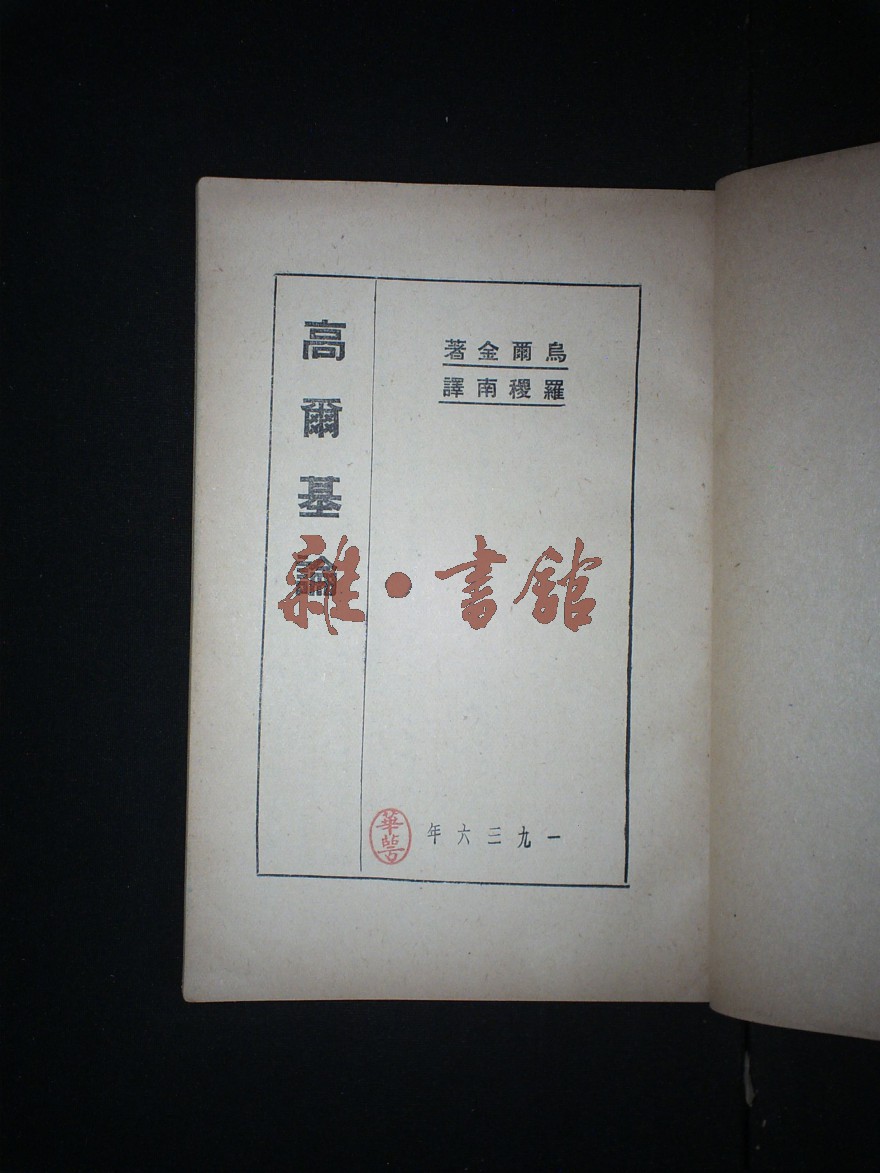 高爾基論
烏爾金著
羅稷南譯
雜·書館
一九三六年
華